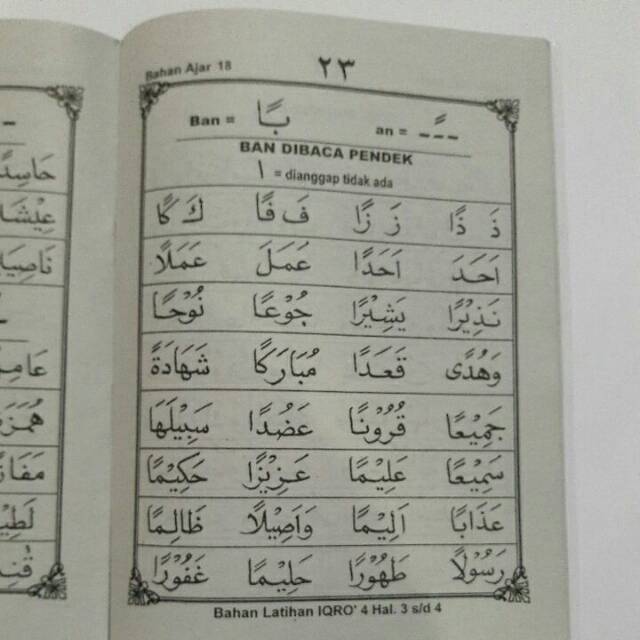 Bahan Ajar 18
٢٣
Ban = بًا an = ـًـ
BAN DIBACA PENDEK
ا = dianggap tidak ada
ذَ ذًا زَ زًا فَ قًا كَ كًا
اَحَدَ اَحَدًا عَمَلَ عَمَلًا
نَذِيْرًا بَشِيْرًا جُوْعًا نُوْحًا
وَهُدًى قَعَدًا مُبَارَكًا شَهَادَةً
جَمِيْعًا قُرُوْنًا عَضُدًا سَبِيْلَهَا
سَمِيْعًا عَلِيْمًا عَزِيْزًا حَكِيْمًا
عَذَابًا اَلِيْمًا وَاَصِيْلًا ظَالِمًا
رَسُوْلًا طَهُوْرًا حَلِيْمًا غَفُوْرًا
Bahan Latihan IQRO' 4 Hal. 3 s/d 4